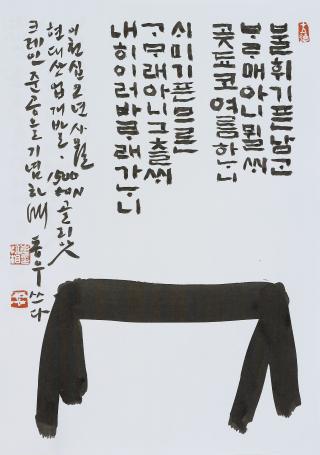 불휘기픈남ᄀᆞᆫ
ᄇᆞᄅᆞ매아니뮐ᄊᆡ
곶됴코여름하ᄂᆞ니
ᄉᆡ미기픈므른
ᄀᆞᄆᆞ래아니그츨ᄊᆡ
내히이러바ᄅᆞ래가ᄂᆞ니
사월
현대산업개발. 1500 TON 골리앗
크레인 준공을 기념하며 쓰다